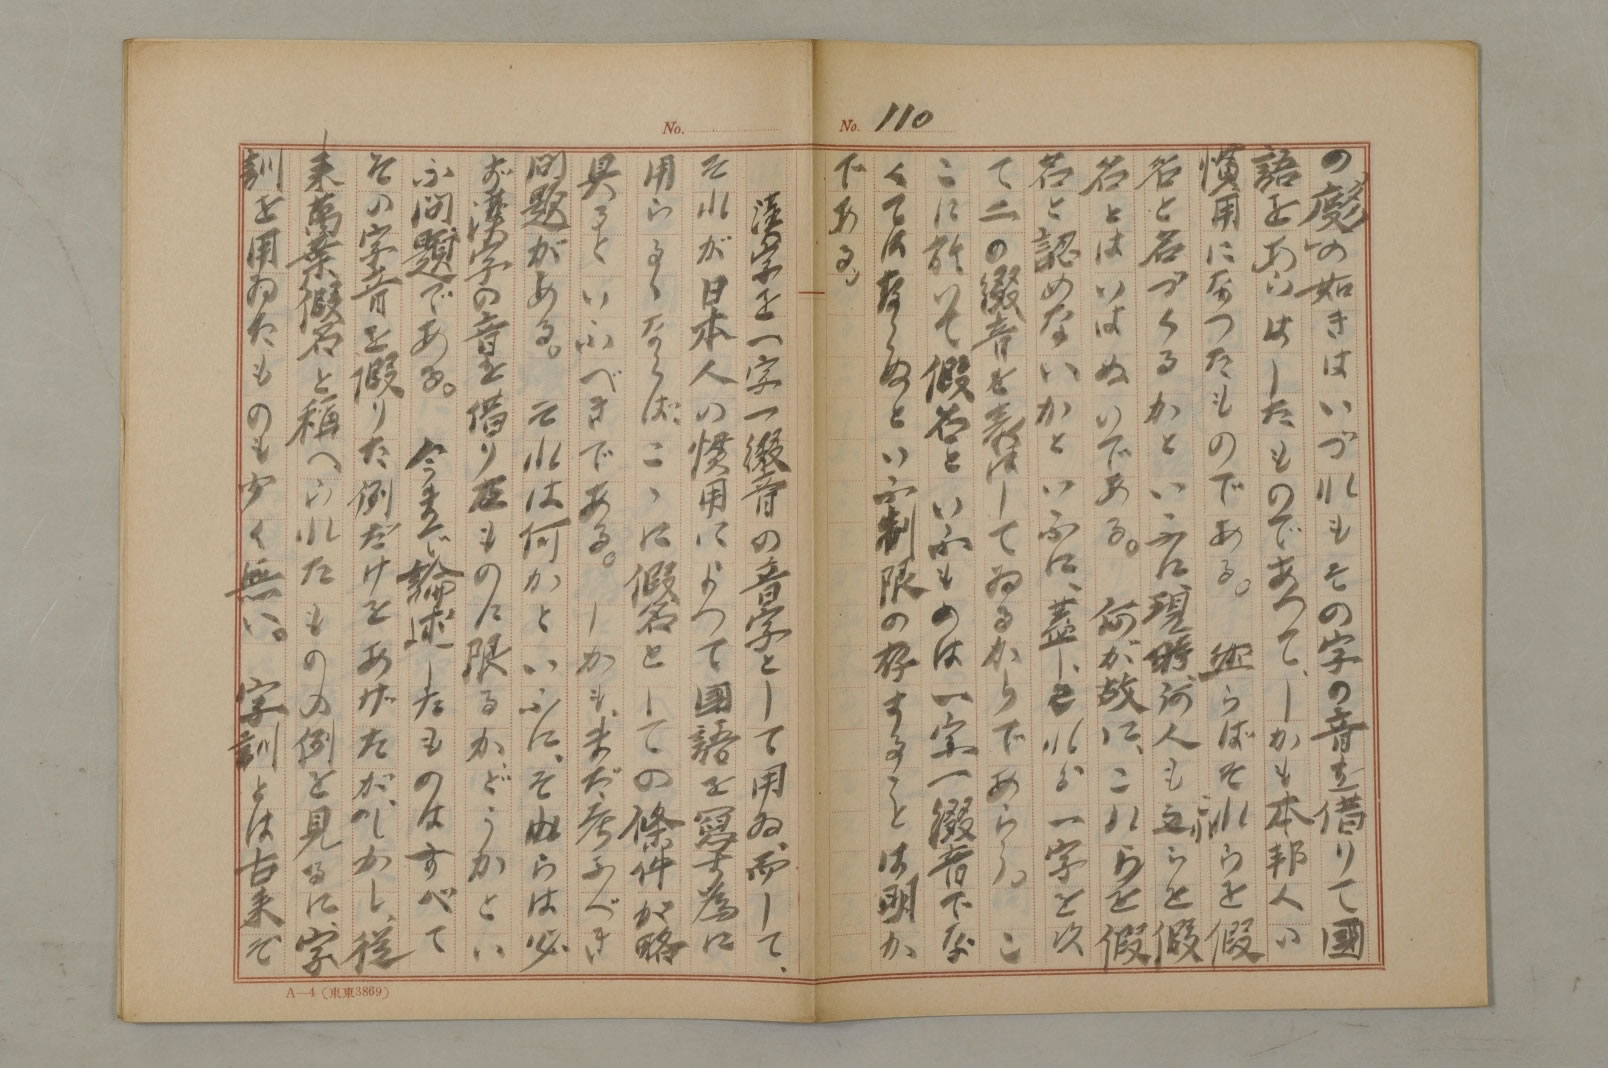 No. 110
の麿の如きはいづれもその字の音を借りて國
語をあらはしたものであつて、しかも本邦人の
慣用になつたものである。然らばそれらを假
名と名づくるかといふに、現時何人も之らを假
名とはいはぬのである。何が故に、これらを假
名と認めないかといふに、蓋しそれが一字を以
て二の綴音を表はしてゐるからであらう。こ
こに於いて假名といふものは一字一綴音でな
くてはならぬといふ制限の存することは明か
である。
No.
漢字を一字一綴音の音字として用ゐ、而して、
それが日本人の慣用によつて國語を寫す為に
用らるゝならば、こゝに假名としての條件が略
具るといふべきである。しかも、まだ考ふべき
問題がある。それは何かといふに、それらは必
ず漢字の音を借り来ものに限るか、どうかとい
ふ問題である。今まで論述したものはすべて
その字音を假りた例だけをあげたが、しかし、從
来萬葉假名と稱へられたものの例を見るに、字
訓を用ゐたものも少く無い。字訓とは古来そ
A—4（東東3869）